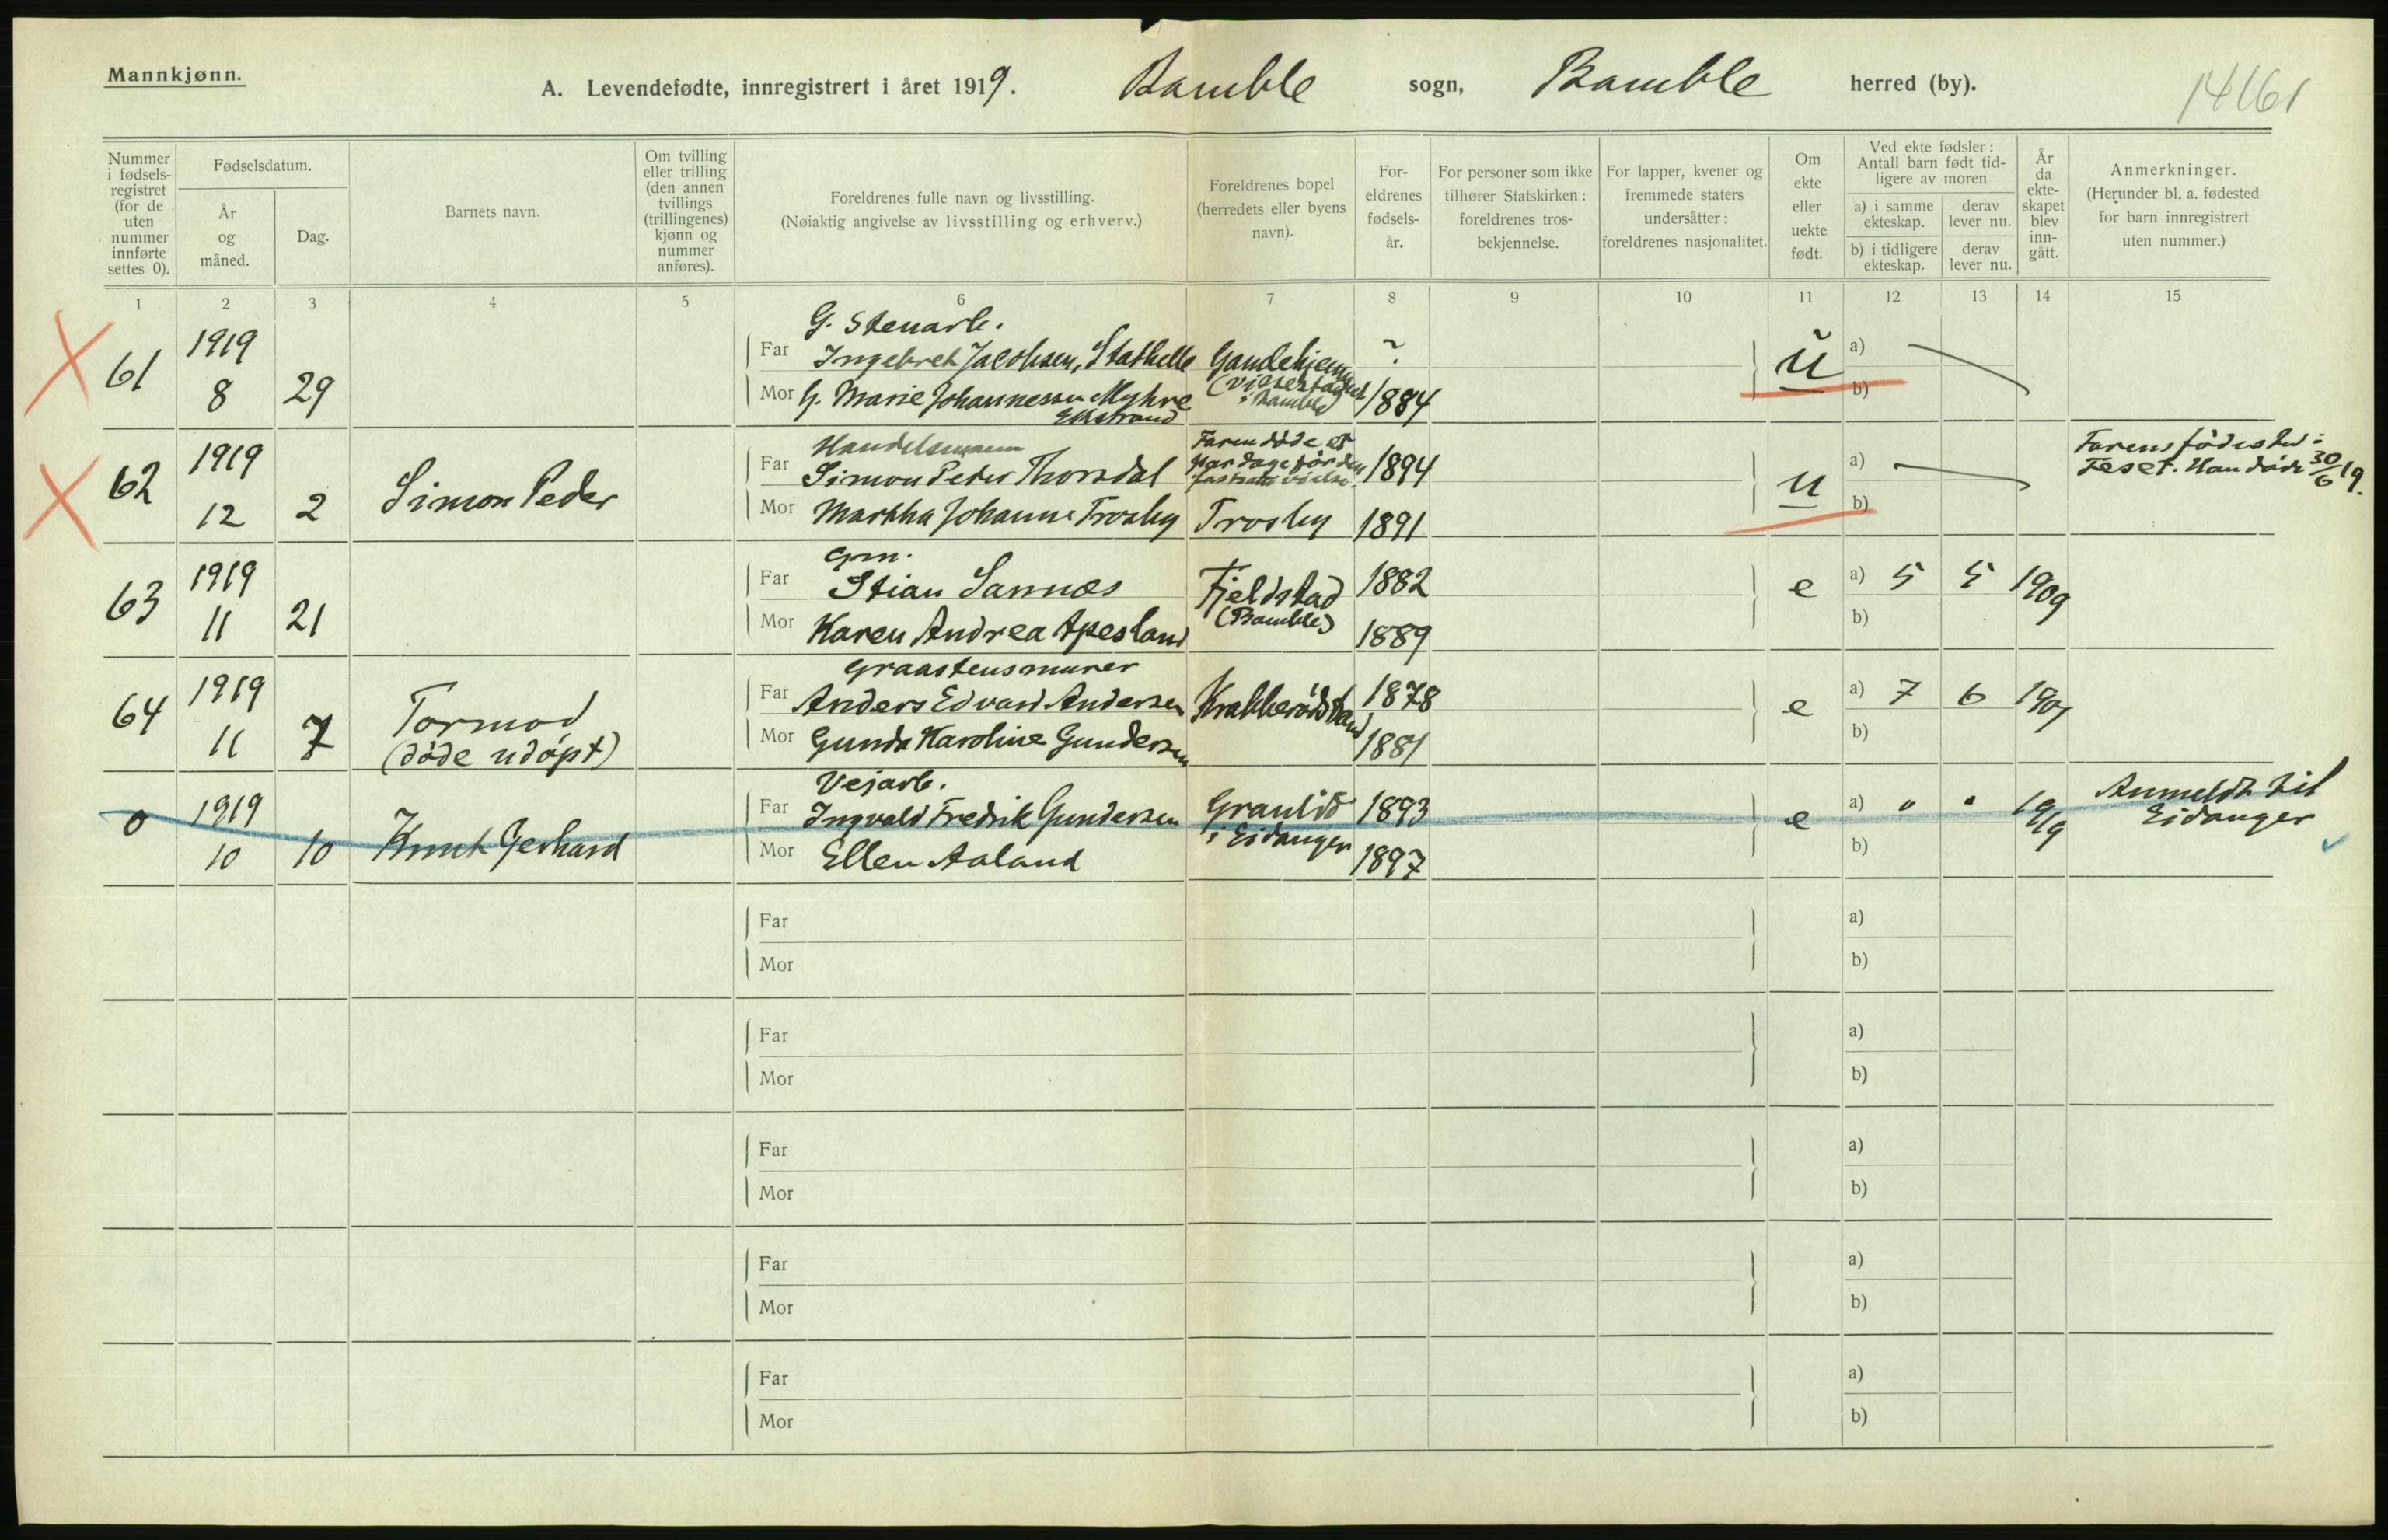 Mannkjønn.
A. Levendefødte, innregistrert i året 1919. Bamble sogn, Bamble herred (by).
Nummer i fødsels-registret (for de uten nummer innførte settes 0).
Fødselsdatum.
År og måned.
Dag.
Barnets navn.
Om tvilling eller trilling (den annen tvillings (trillingenes) kjønn og nummer anføres).
Foreldrenes fulle navn og livsstilling.
(Nøiaktig angivelse av livsstilling og erhverv.)
Foreldrenes bopel (herredets eller byens navn).
For-eldrenes fødsels-år.
For personer som ikke tilhører Statskirken: foreldrenes tros-bekjennelse.
For lapper, kvener og fremmede staters undersåtter: foreldrenes nasjonalitet.
Om ekte eller uekte født.
Ved ekte fødsler: Antall barn født tid-ligere av moren
a) i samme ekteskap.
derav lever nu.
b) i tidligere ekteskap.
derav lever nu.
År da ekte-skapet blev inn-gått.
Anmerkninger.
(Herunder bl. a. fødested for barn innregistrert uten nummer.)
1 2 3 4 5 6 7 8 9 10 11 12 13 14 15
G. Stenarb.
61 1919 Far Ingebret Jacobsen, Stathelle ? u a)
8 29 Mor G. Marie Johannesen Myhre 1884 b)
Ekstrand
i Bamble)
Handelsmann
Faren døde et
par dage før den
62 1919 Simon Peder Far Simon Peder Thorsdal 1894 u a) Farens fødested:
Feset. Han døde 30/6 19.
12 2 Mor Martha Johanne Trosby Trosby 1891 b)
Gm.
63 1919 Far Stian Sannes Fjeldstad 1882 e a) 5 5 1909
(Bamble)
11 21 Mor Karen Andrea Apesland 1889 b)
Graastensmurer
64 1919 Tormod Far Anders Edvard Andersen Krabberødstrand 1878 e a) 7 6 1901
11 7 (døde udøpt) Mor Gunda Karoline Gundersen 1881 b)
Vejarb.
0 1919 Knut Gerhard Far Ingvald Fredrik Gundersen Granlid 1893 e a) " " 1919 Anmeldt til
Eidanger
10 10 Mor Ellen Aaland i Eidanger 1897 b)
Far a)
Mor b)
Far a)
Mor b)
Far a)
Mor b)
Far a)
Mor b)
Far a)
Mor b)